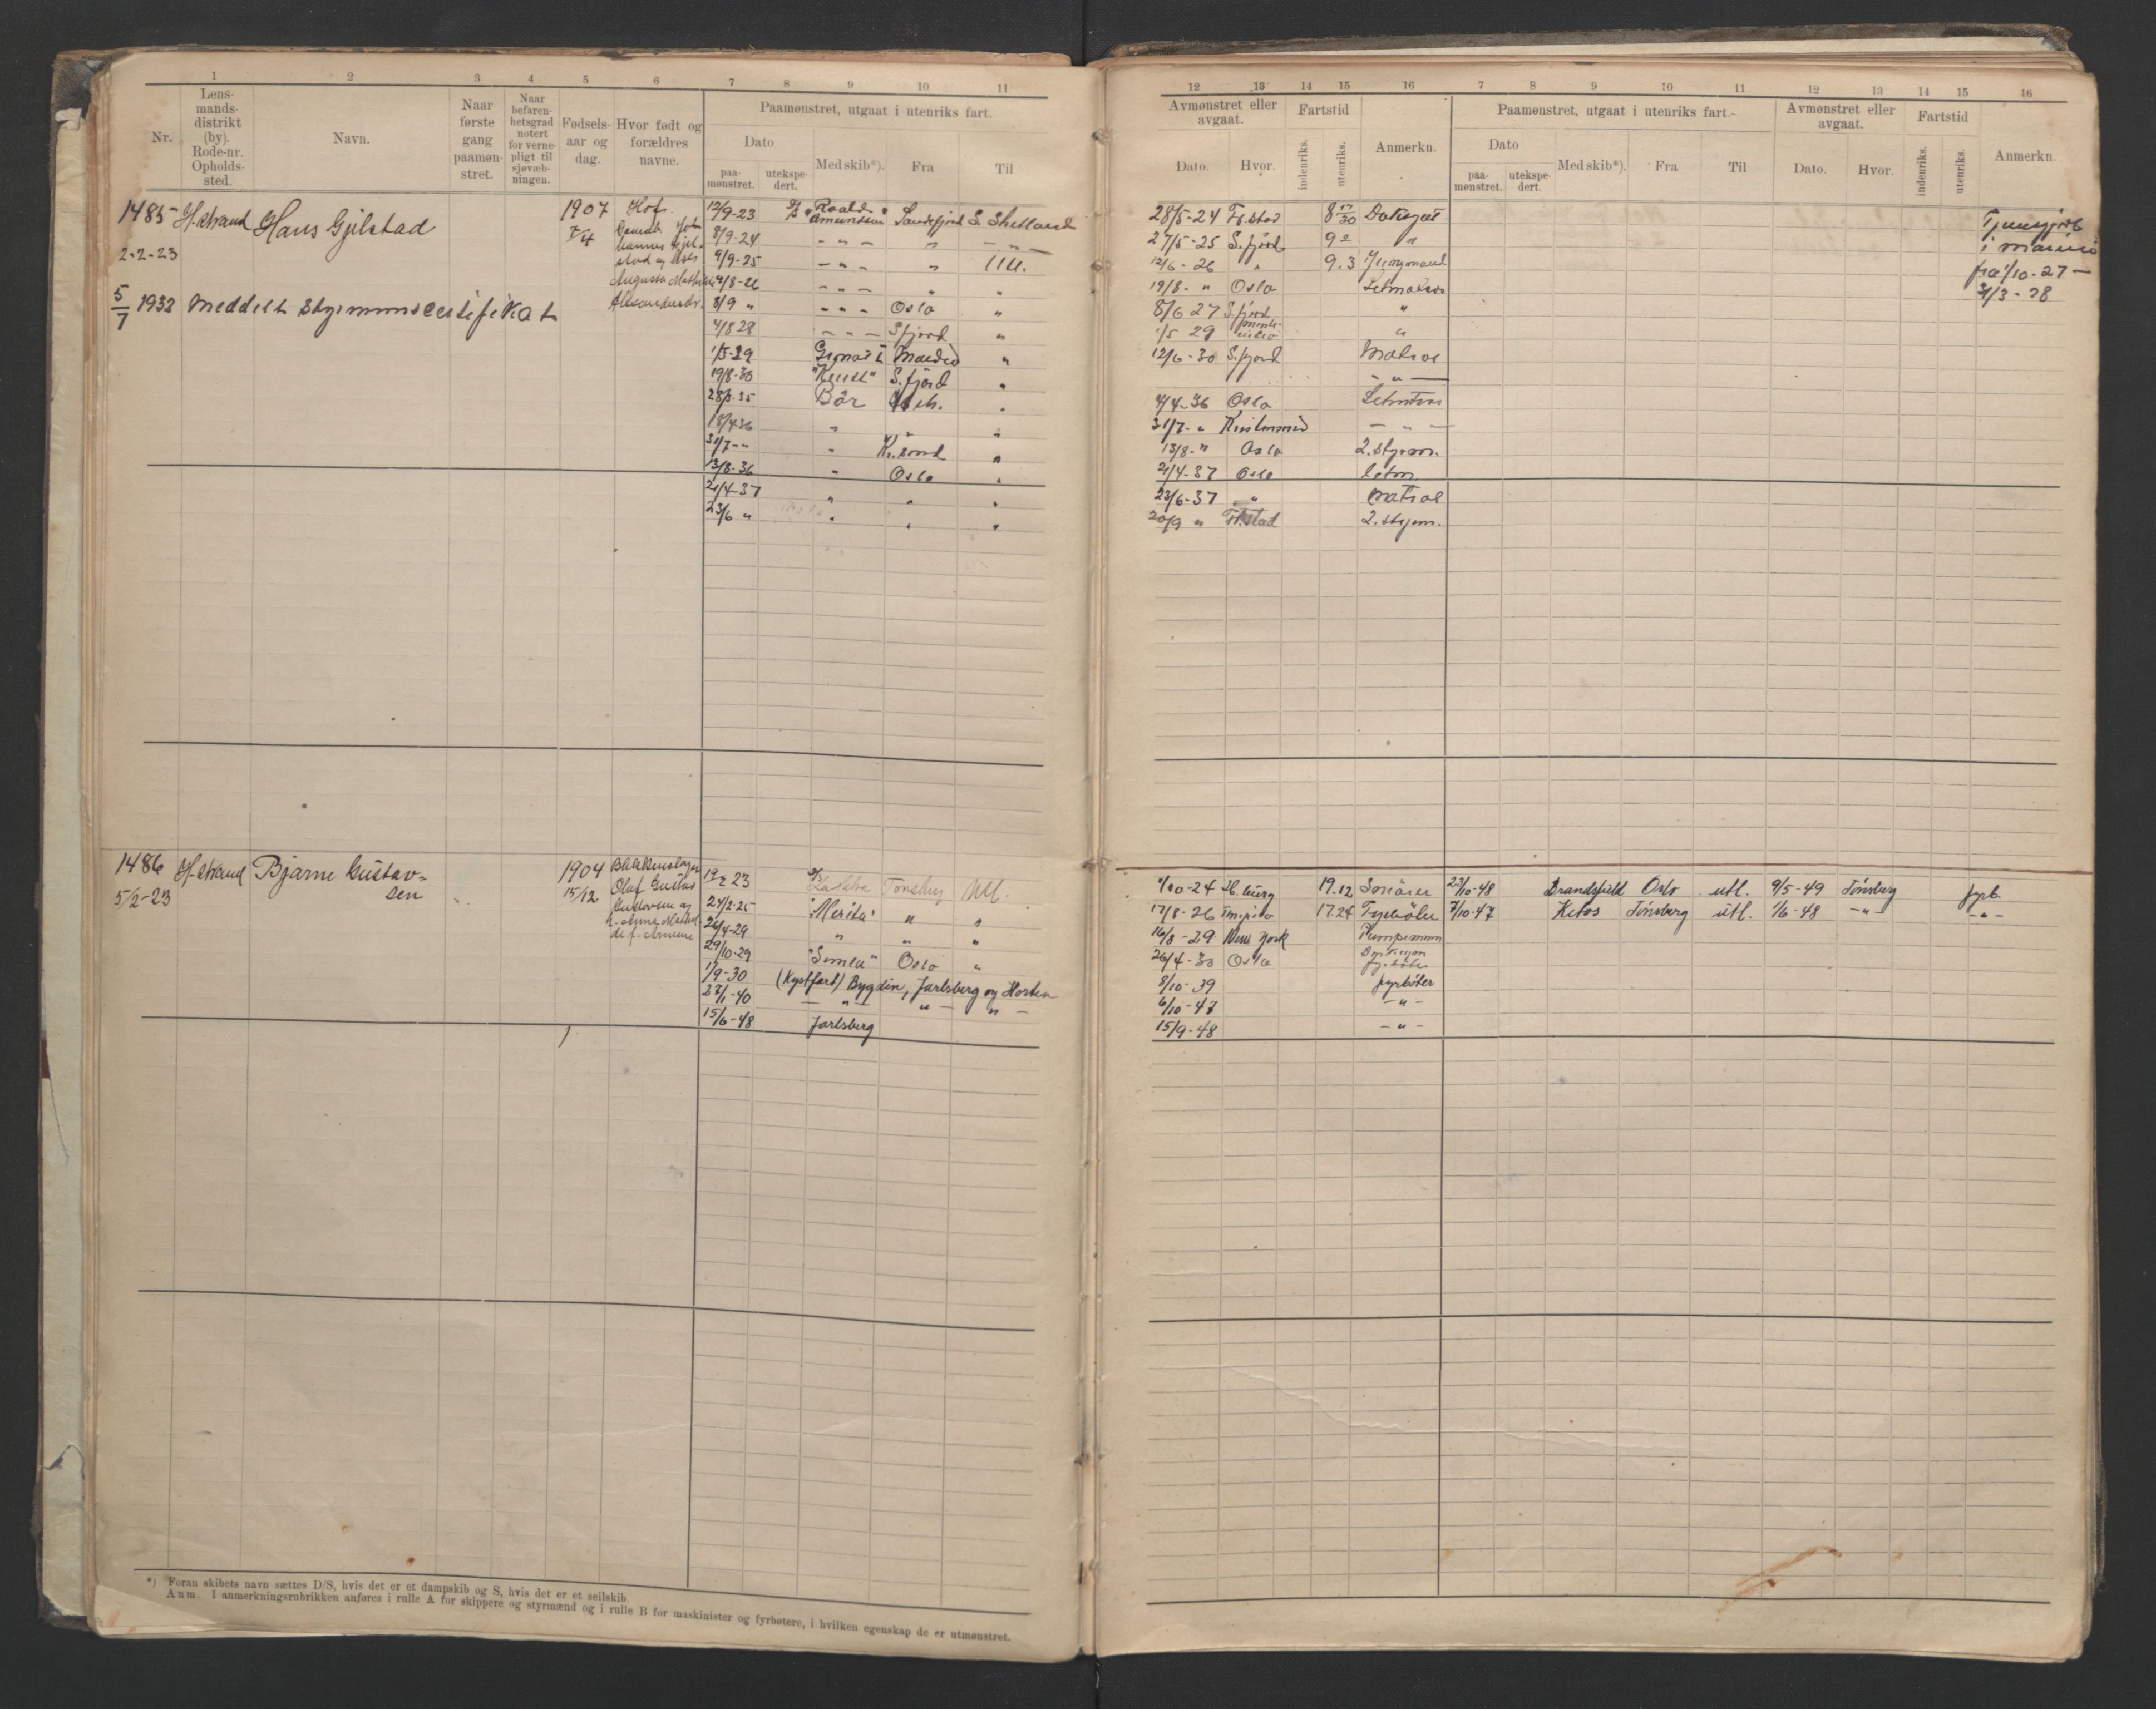 1 2 3 4 5 6 7 8 9 10 11
Nr.
Lens-
mands-
distrikt
(by).
Rode-nr.
Opholds-
sted.
Navn.
Naar
første
gang
paamøn-
stret.
Naar
befaren-
hetsgrad
notert
for verne-
pligt til
sjøvæb-
ningen.
Fødsels-
aar og
dag.
Hvor født og
forældres
navne.
Paamønstret, utgaat i utenriks fart.
Dato
paa-
mønstret.
utekspe-
dert.
Med skib*).
Fra
Til
1485 H.strand Hans Gjelstad 1907 Hof
2-2-23
5/7 1932 Meddelt Styrmannscertifikat
12/9-23 D/S "Roald Amundsen" Sandefjord S. Shetland
8/9-24 - " - " - " -
9/9-25 - " - " Utl.
/8-26 - " - " "
8/9 " - " - Oslo "
4/8 28 - - - Sfjord "
1/5-29 "
19/8-30 S.fjord "
28/8-35 Bör "
18/4 36 " " "
31/7 - " " Kr.sund "
13/8-36 " Oslo "
21/4-37 " " "
23/6 " " " "
1486 H.strand Bjarne Gustav-
sen
5/2-23
1904
15/12
Olaf Gustav
Gustavsen og
19/2 23 Tønsberg Utl.
24/2-25 "Merita" " "
26/4-29 " " "
29/10-29 "Simla" Oslo "
1/9-30 (Kystfart) Bygdin, Jarlsberg og Horten
23/1-40 - " - " - " -
15/6-48 Jarlsberg
*) Foran skibets navn sættes D/S, hvis det er et dampskib og S, hvis det er et seilskib.
Anm. I anmerkningsrubrikken anføres i rulle A for skippere og styrmænd og i rulle B for maskinister og fyrbøtere, i hvilken egenskap de er utmønstret.
12 13 14 15 16 7 8 9 10 11 12 13 14 15 16
Avmønstret eller
avgaat.
Dato.
Hvor.
Fartstid
indenriks.
utenriks.
Anmerkn.
Paamønstret, utgaat i utenriks fart.-
Dato
paa-
mønstret.
utekspe-
dert.
Med skib*).
Fra
Til
Avmønstret eller
avgaat.
Dato.
Hvor.
Fartstid
indenriks.
utenriks.
Anmerkn.
28/5-24 Fr.stad 8 17/30 Dæksgut
27/5-25 S.fjord 9 "
12/6-26 " 9.3 Jungmand
19/8- " Oslo Letmatros
8/6 27 S.fjord "
1/5 29 "
12/6-30 S.fjord Matros
- " -
4/4-36 Oslo Letmatros
31/7- " - " -
13/8- " Oslo 2. styrm.
21/4-37 Oslo
23/6-37 " Matros
20/9 " Fr.stad 2. styrm.
Tjenegjort
i marine
fra 1/10-27-
31/3-28
1/10-24 19.12 23/10-48 Brandsfield Oslo utl. 9/5-49 Tönsberg fyrb.
17/8-26 17.24 Fyrböter 7/10-47 Ketos Tönsberg utl. 1/6-48 - " - - " -
16/8-29 New York Pumpemann
26/4-30 Oslo
8/10-39 fyrböter
6/10-47 - " -
15/9-48 - " -